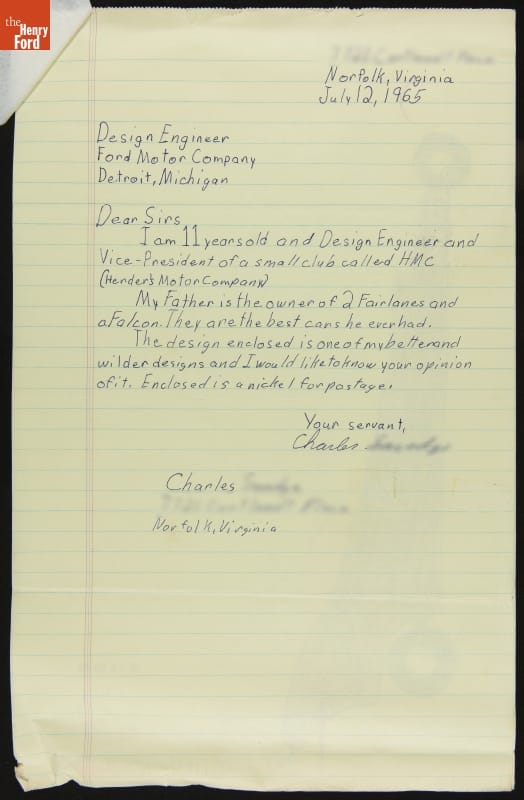 the
Henry
Ford
Norfolk, Virginia
July 12, 1965
Design Engineer
Ford Motor Company
Detroit, Michigan
Dear Sirs,
I am 11 years old and Design Engineer and
Vice-President of a small club called HMC
(Herder's Motor Company)
My Father is the owner of 2 Fairlanes and
a Falcon. They are the best cars he ever had.
The design enclosed is one of my better and
wilder designs and I would like to know your opinion
of it. Enclosed is a nickel for postage.
Your servant,
Charles
Charles
Norfolk, Virginia